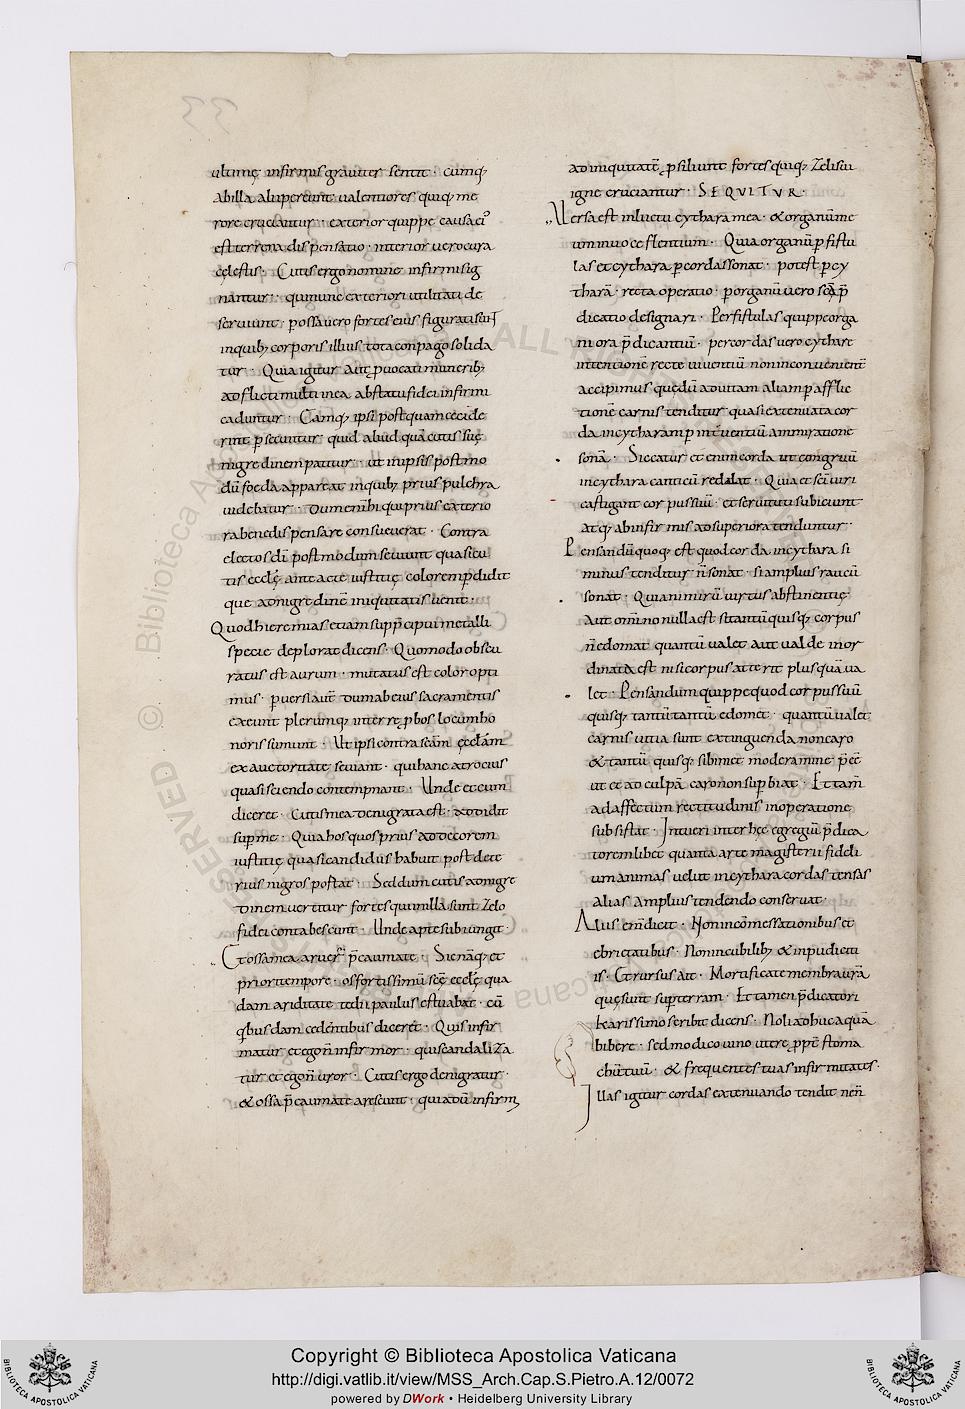 ultimę infirmis graviter sentit · cumq;
ab illa alii pereunt ualentiores quiq; me
rore cruciantur · exterior quippe causa ei'
est terrena dispensatio · interior uero cura
cęlestis · Cutis ergo nomine infirmi sig
nantur · qui nunc exteriori utilitati de
seruiunt p ossa uero fortes eius figurati sunt
in quib; corporis illius tota conpago solida
tur · Quia igitur aut puocati munerib;
ad flicti multi in ea ab statu fidei infirmi
caduntur · Eamq; ipsi postquam cecide
rint psecuntur quid aliud quā cutis suę
nigredinem patitur · ut in ipsis postmo
dū foeda appareat in quib; prius pulchra
uidebatur · Dum enī hi qui prius exterio
ra bene dispensare consueuerat · Contra
electos dī postmodum seuiunt quasi cu
tis ecclę ante acte iustitię colorem pdidit
que ad nigredinē iniquitatis uenit ·
Quod hieremias etiam sup pcipui metalli
specie deplorat dicens · Quomodo obscu
ratus est aurum · mutatus est color opti
mus · puersi aut dum ab eius sacramentis
exeunt plerumq; inter re pbos locum ho
noris sumunt · Ut ipsi contra scām ecclām
ex auctoritate seuiant · qui hanc atrocius
quasi sciendo contempnant · Unde et cum
diceret · Cutis mea denigrata est · addidit
sup me · Quia hos quos prius ad decorem
iustitię quasi candidus habuit post dete
rius nigros postat · Sed dum cutis ad nigre
dinem uertitur fortes qui in illa sunt zelo
fidei contabescunt · Unde apte subiungit ·
Et ossa mea aruerī p caumate · Sic nāq; et
priori tempore · os fortissimū scę ecclę qua
dam ariditate tedii paulus estuabat · cū
qbusdam cedentibus diceret · Quis infir
matur et ego n̄ infirmor · quis candaliza
tur et ego n̄ uror · Cutis ergo denigratur ·
& ossa p caumate arescunt · quia dū infirmi
ad iniquitatē psiliunt fortes quiq; zeli sui
igne cruciantur · SEQUITUR ·
Uersa est in luctu cythara mea · & organū me
um in uoce flentium · Quia organū p fistu
las et cythara p cordas sonat · potest p cy
tharā · recta operatio · p organū uero scā p
dicatio designari · Per fistulas quippe orga
ni ora pdicantiū · per cordas uero cythare
intentionē recte uiuentiū non inconuenient
accipimus quędū ad uitam aliam p afflic
tionē carnis tenditur quasi extenuata cor
da in cythara p intuentiū ammirationē
sonā · Siccatur et enim corda ut congruū
in cythara canticū reddat · Quia et sc̄i uiri
castigant corpus suū · et seruituti subiciunt
atq; ab infirmis ad superiora tenduntur ·
Pensandū quoq; est quod corda in cythara si
minus tenditur n̄ sonat · si amplius raucū
sonat · Quia nimirū uirtus abstinentię
aut omīno nulla est si tantū quisq; corpus
n̄ edomat quantū ualet aut ualde inor
dinata est nisi corpus atterit plus quā ua
let · Pensandum quippe quod corpus suū
quisq; tantū tantū edomet · quantū ualet
carnis uitia sunt extinguenda non caro
& tantū quisq; sibimet moderamine p ee
ut et ad culpā caro non supbiat · Et tam
ad affectum rectitudinis in operatione
subsistat · Intueri inter hęc egregiū pdica
torem libet quanta arte magisterii fideli
um animas uelut in cythara cordas tensas
alias amplius tendendo conseruat ·
Aliis eni dicit · Non in comessationibus et
ebrietatibus · Non in cubilib; & inpudiciti
is · Et rursus ait · Mortificate membra ur̄a
quę sunt sup terram · Et tamen pdicatori
karissimo scribit dicens · Noli adhuc aquā
bibere · sed modico uino utere ppt stoma
chū tuū · & frequentes tuas infirmitates ·
Illas igitur cordas extenuando tendit ne n̄
33
Copyright © Biblioteca Apostolica Vaticana
http://digi.vatlib.it/view/MSS_Arch.Cap.S.Pietro.A.12/0072
powered by DWork • Heidelberg University Library